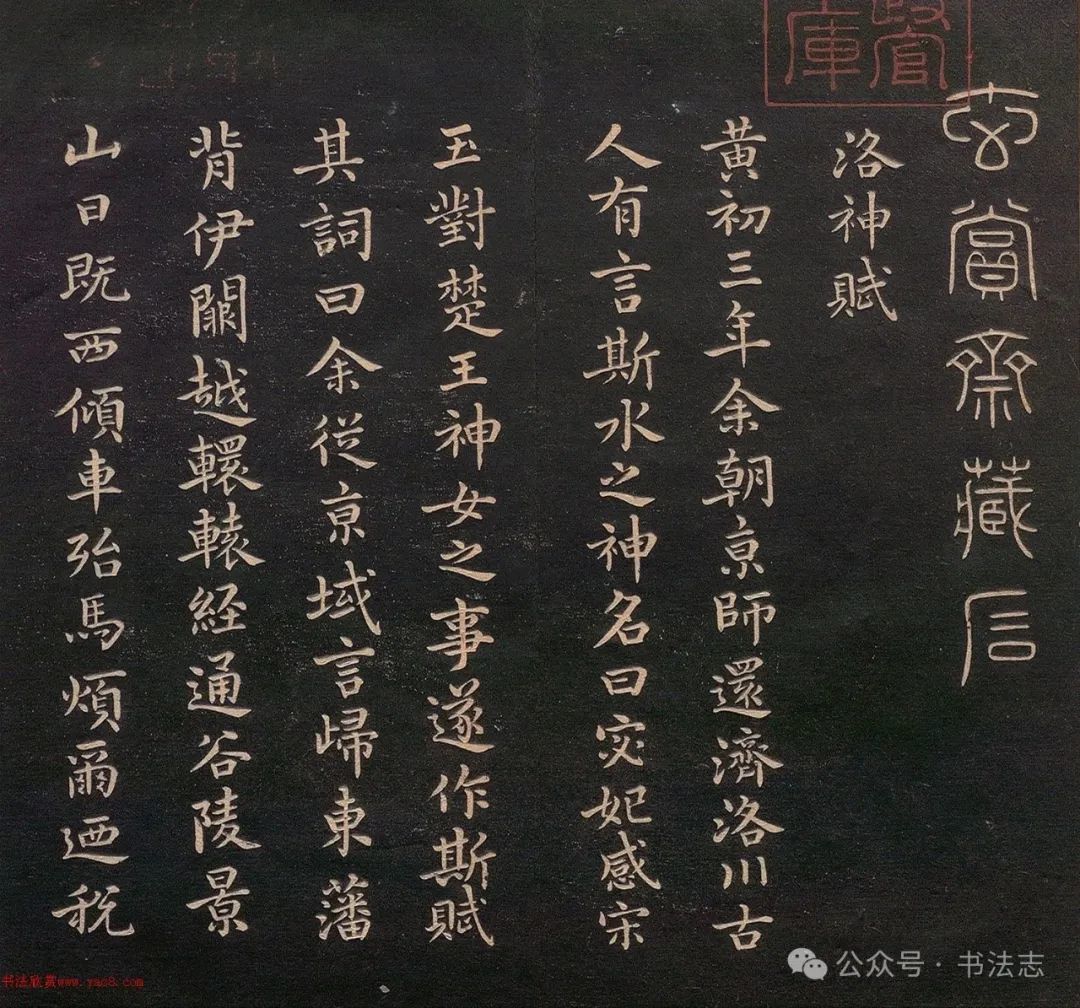 官
庫
玄賞齋藏石
洛神賦
黄初三年余朝亰師還濟洛川古
人有言斯水之神名曰宓妃感宋
玉對楚王神女之事遂作斯賦
其詞曰余從亰域言歸東藩
背伊闕越轘轅経通谷陵景
山日既西傾車殆馬煩爾迺税
公众号 · 书法志
书法欣赏www.yac8.com